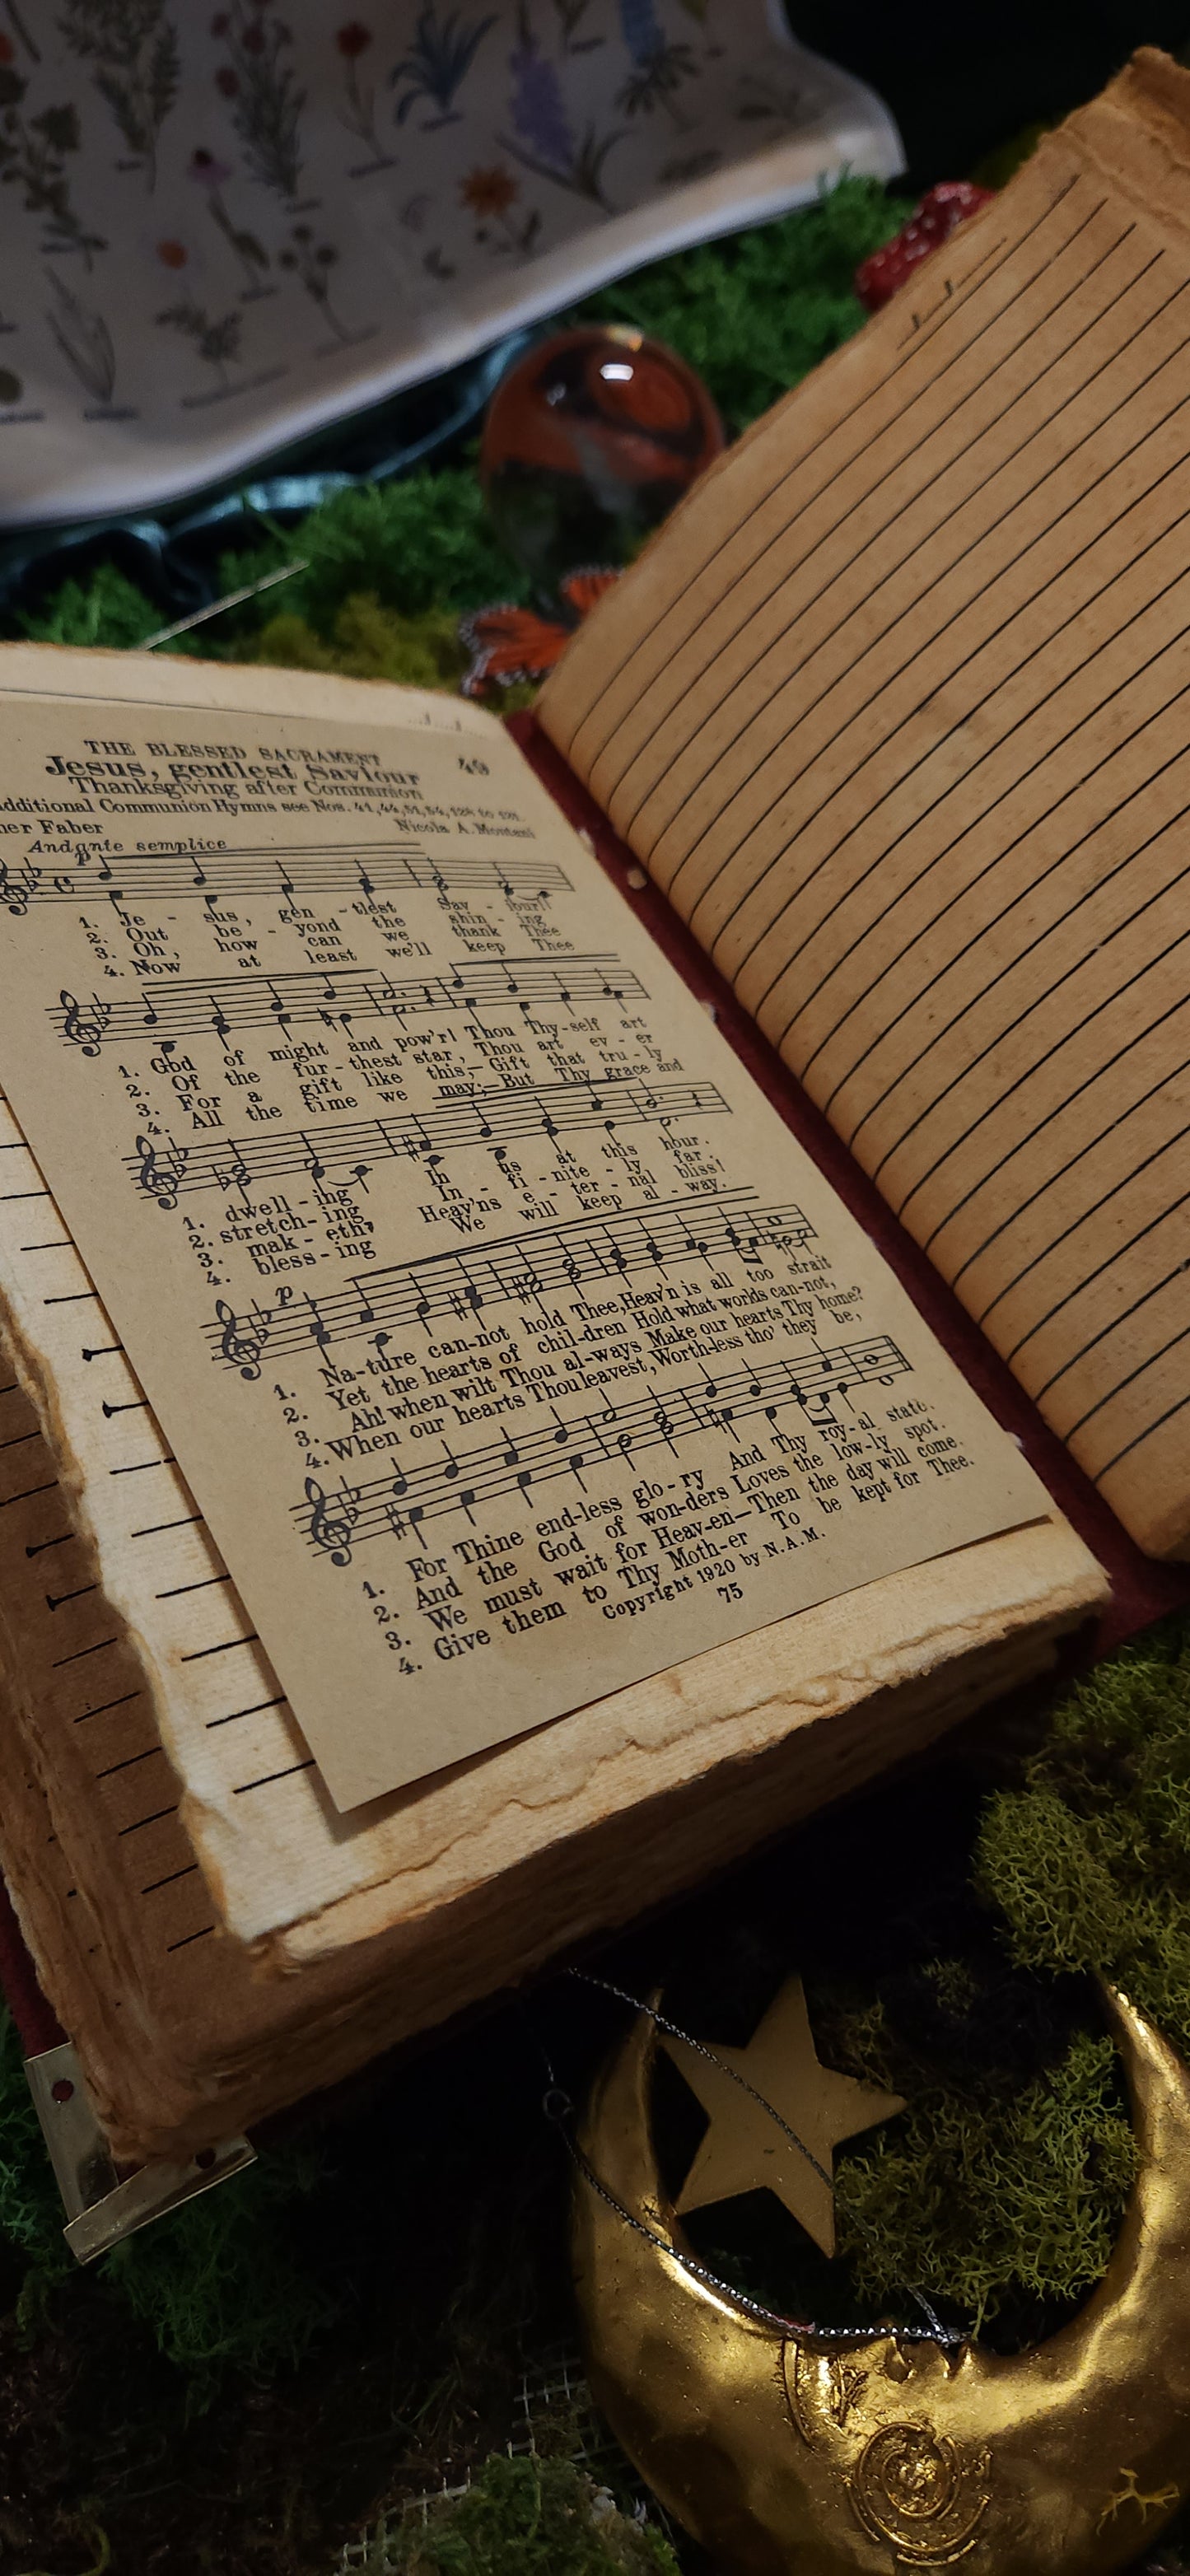 THE BLESSED SACRAMENT
Jesus, gentlest Saviour 49
Thanksgiving after Communion
additional Communion Hymns see Nos. 41,44,51,54,
Faber Nicola A. Montani
Andante semplice
p
1. Je - sus, gen - tlest Sav - iour!
2. Out be - yond the shin - ing
3. Oh, how can we thank Thee
4. Now at least we'll keep Thee
1. God of might and pow'r! Thou Thy-self art
2. Of the fur - thest star, Thou art ev - er
3. For a gift like this;- Gift that tru - ly
4. All the time we may;- But Thy grace and
1. dwell - ing In us at this hour.
2. stretch - ing In - fi - nite - ly far.
3. mak - eth Heav'ns e - ter - nal bliss!
4. bless - ing We will keep al - way.
p
1. Na-ture can-not hold Thee, Heav'n is all too strait
2. Yet the hearts of chil-dren Hold what worlds can-not,
3. Ah! when wilt Thou al-ways Make our hearts Thy home?
4. When our hearts Thou leavest, Worth-less tho' they be,
1. For Thine end-less glo-ry And Thy roy-al state.
2. And the God of won-ders Loves the low-ly spot.
3. We must wait for Heav-en—Then the day will come.
4. Give them to Thy Moth-er To be kept for Thee.
Copyright 1920 by N.A.M.
75